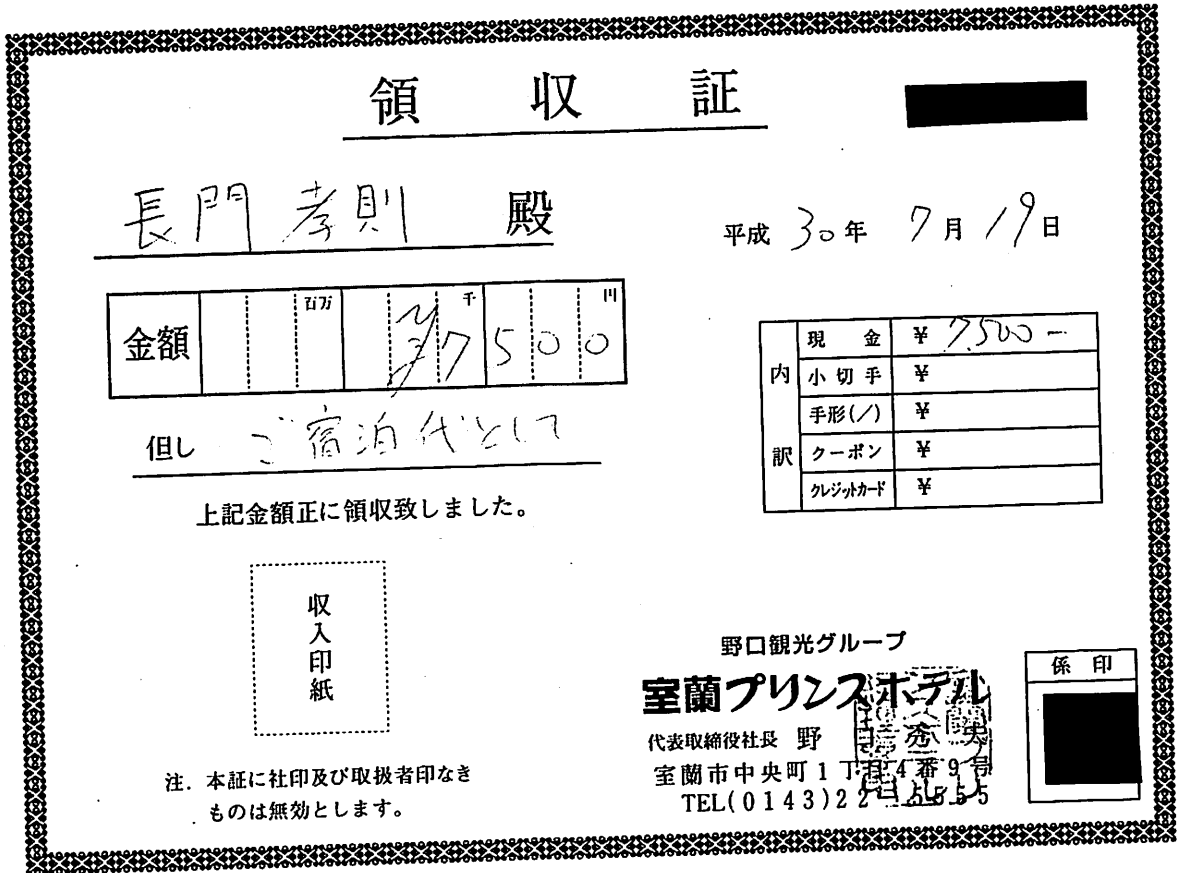 領 収 証
長門 孝則 殿
平成 30年 7月 19日
金額 百万 千 円
¥7500
但し ご宿泊代として
上記金額正に領収致しました。
内訳
現金 ¥ 7,500-
小切手 ¥
手形(/) ¥
クーポン ¥
クレジットカード ¥
収入印紙
注. 本証に社印及び取扱者印なき
ものは無効とします。
野口観光グループ
室蘭プリンスホテル
代表取締役社長 野口秀夫
室蘭市中央町1丁目4番9号
TEL(0143)22-5555
係印